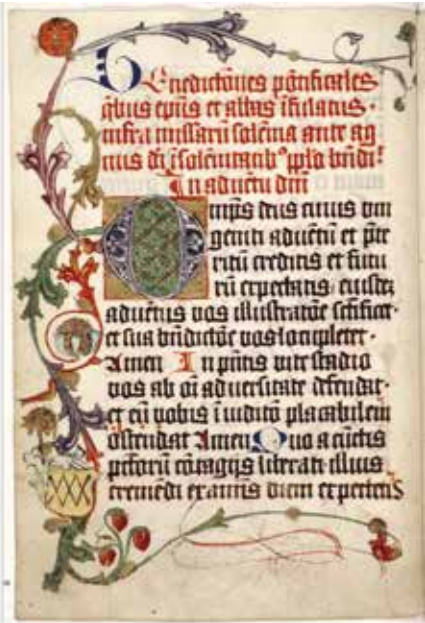 Benedictōnes pōntificales
qbus ep̄us et abbas īfulatus·
infra missarū solēnia ante ag
nus dī ī solēnitatibꝰ pp̄lm bn̄dit
In advētu dn̄i
Omp̄s deus cuius vni
geniti advētū et p̄te
ritū creditis et futu
rū expectatis· eiusdē
advētus vos illustratōe sc̄ificet
et sua bn̄dictōe vos locupletet·
Amen In pn̄tis vite stadio
vos ab oī adversitate dēfendat·
et cū vobis ī iuditō placabilem
ostendat Amen Quo a cūctis
pctōrū cōtagijs liberati illius
tremēdi examīs diem expectetis